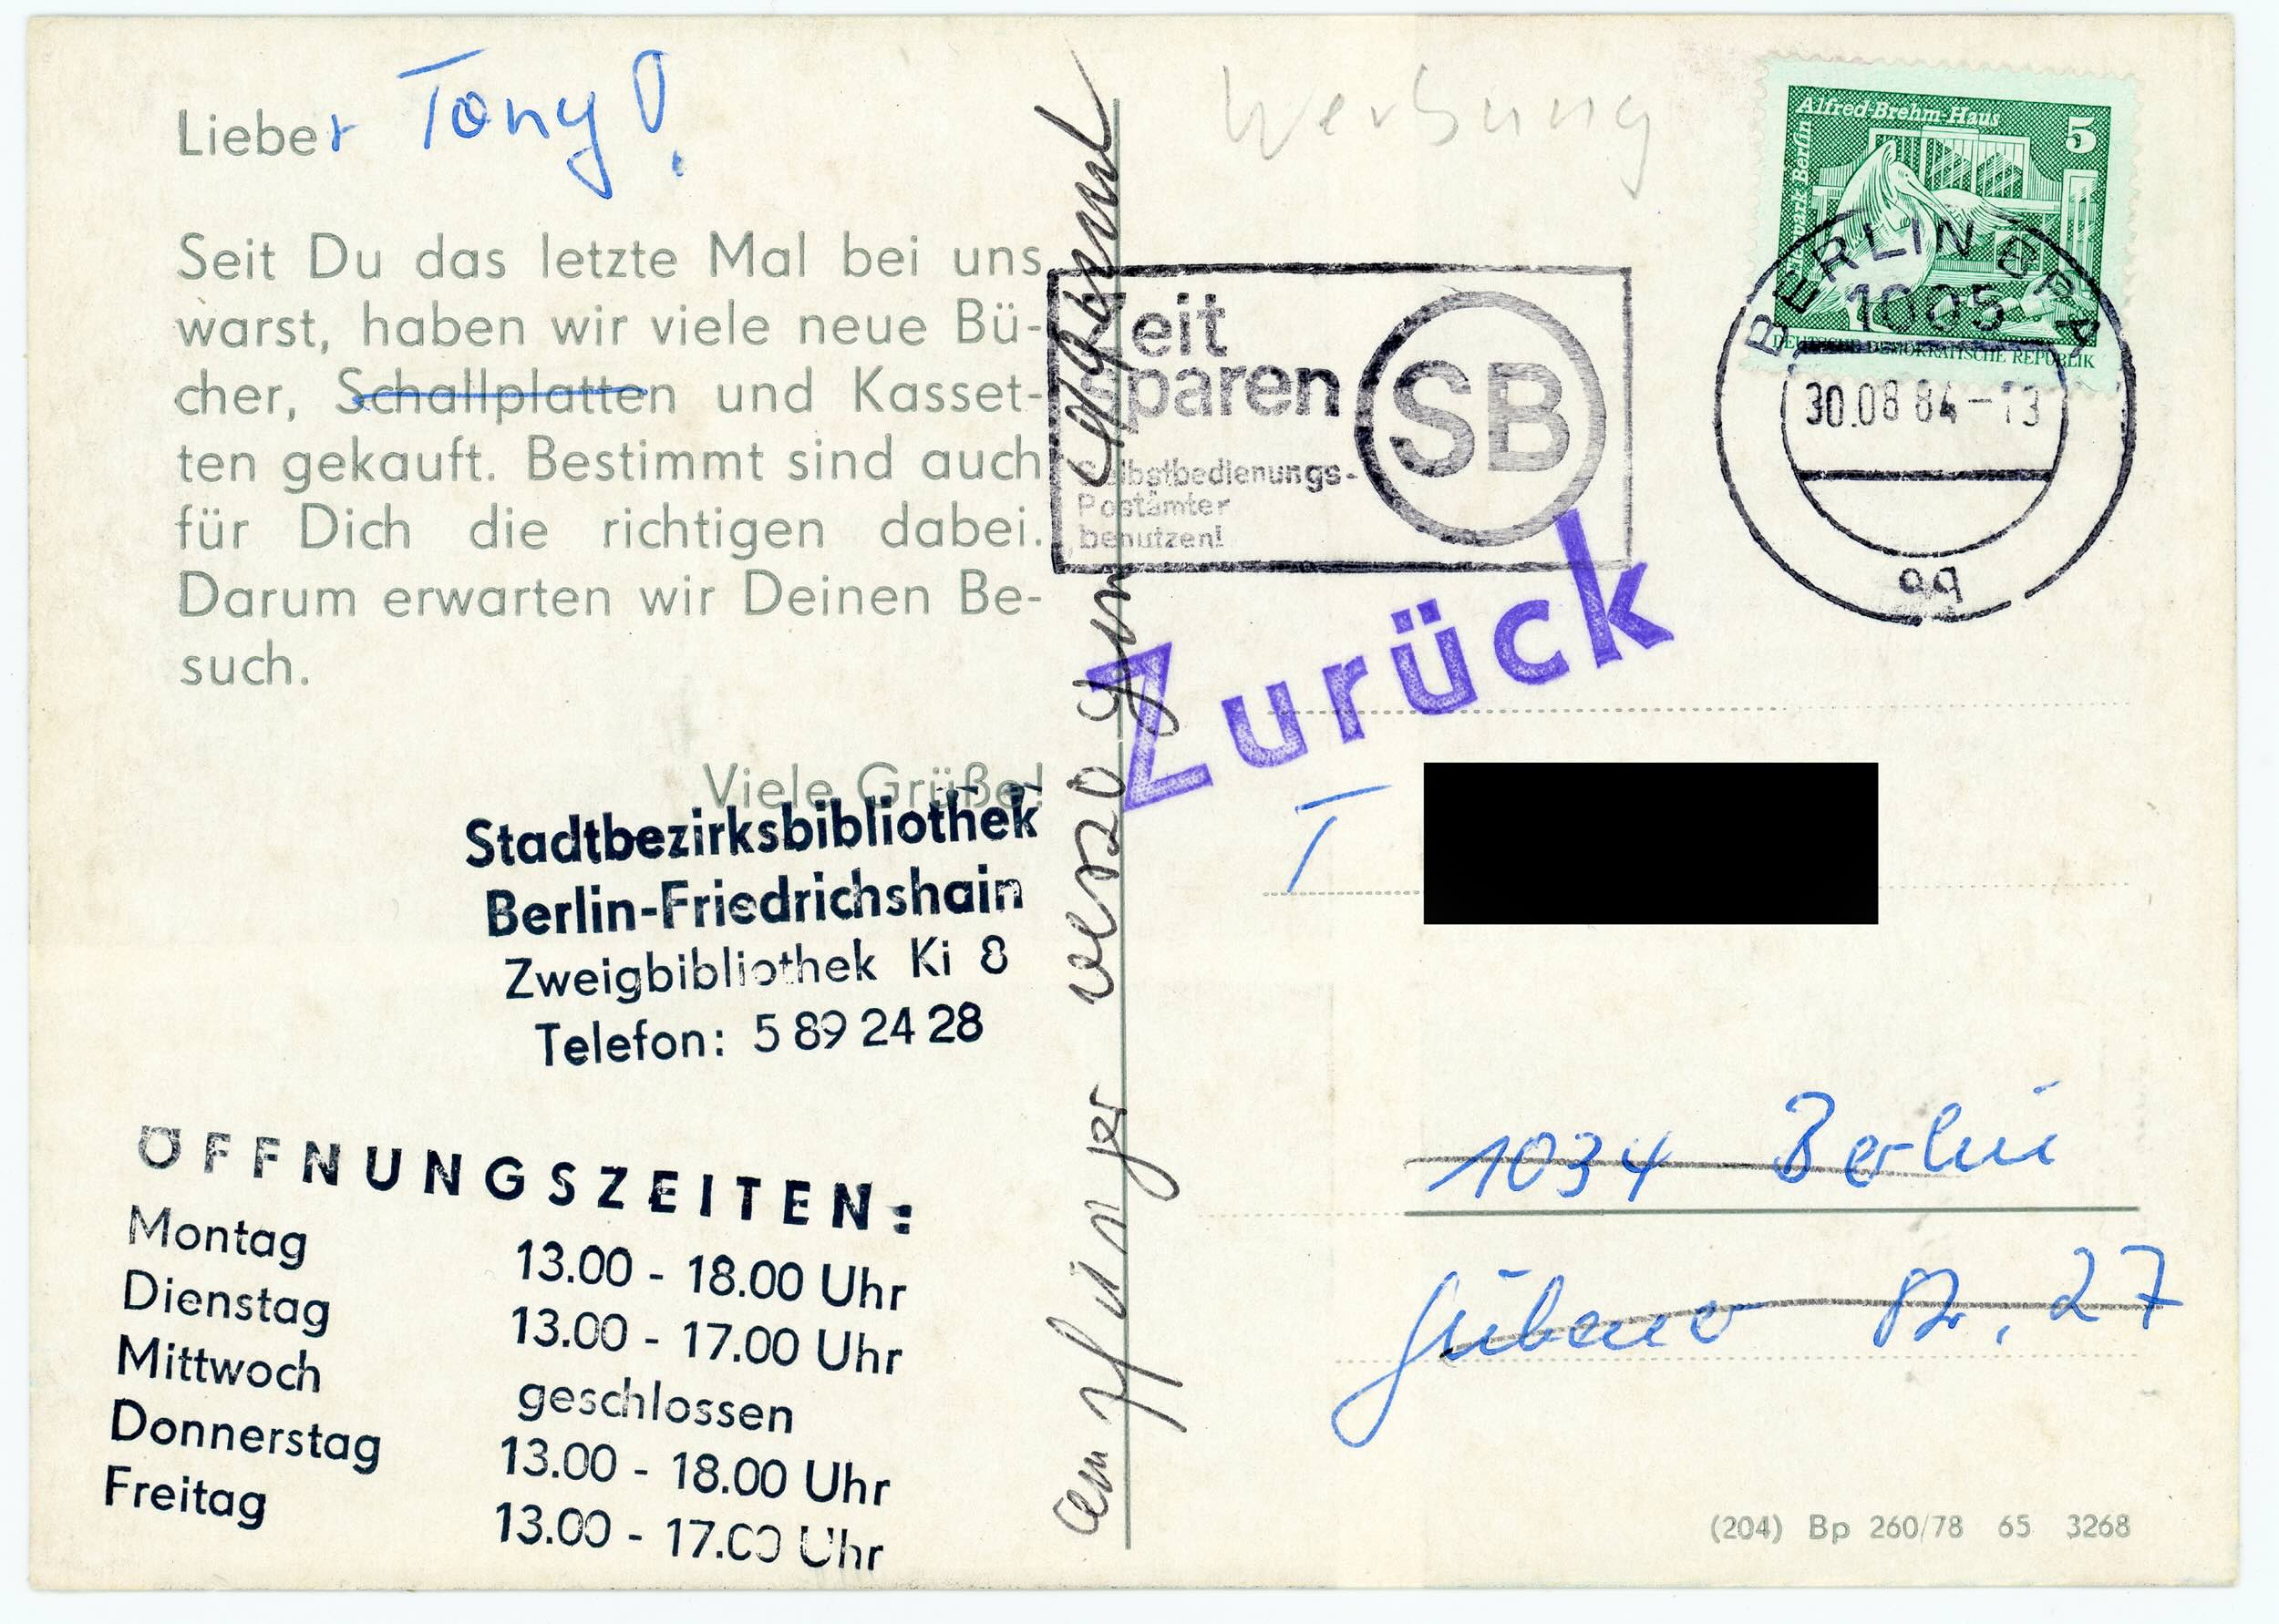 Lieber Tony!
Seit Du das letzte Mal bei uns
warst, haben wir viele neue Bü-
cher, Schallplatten und Kasset-
ten gekauft. Bestimmt sind auch
für Dich die richtigen dabei.
Darum erwarten wir Deinen Be-
such.
Viele Grüße!
Stadtbezirksbibliothek
Berlin-Friedrichshain
Zweigbibliothek Ki 8
Telefon: 5 89 24 28
ÖFFNUNGSZEITEN:
Montag 13.00 - 18.00 Uhr
Dienstag 13.00 - 17.00 Uhr
Mittwoch geschlossen
Donnerstag 13.00 - 18.00 Uhr
Freitag 13.00 - 17.00 Uhr
verzogen
Werbung
Zeit
sparen
SB
Selbstbedienungs-
Postämter
benutzen!
Alfred-Brehm-Haus
5
Tierpark Berlin
DEUTSCHE DEMOKRATISCHE REPUBLIK
BERLIN BPA
1005
30.08 84-13
Zurück
T
1034 Berlin
Gubener Str. 27
(204) Bp 260/78 65 3268